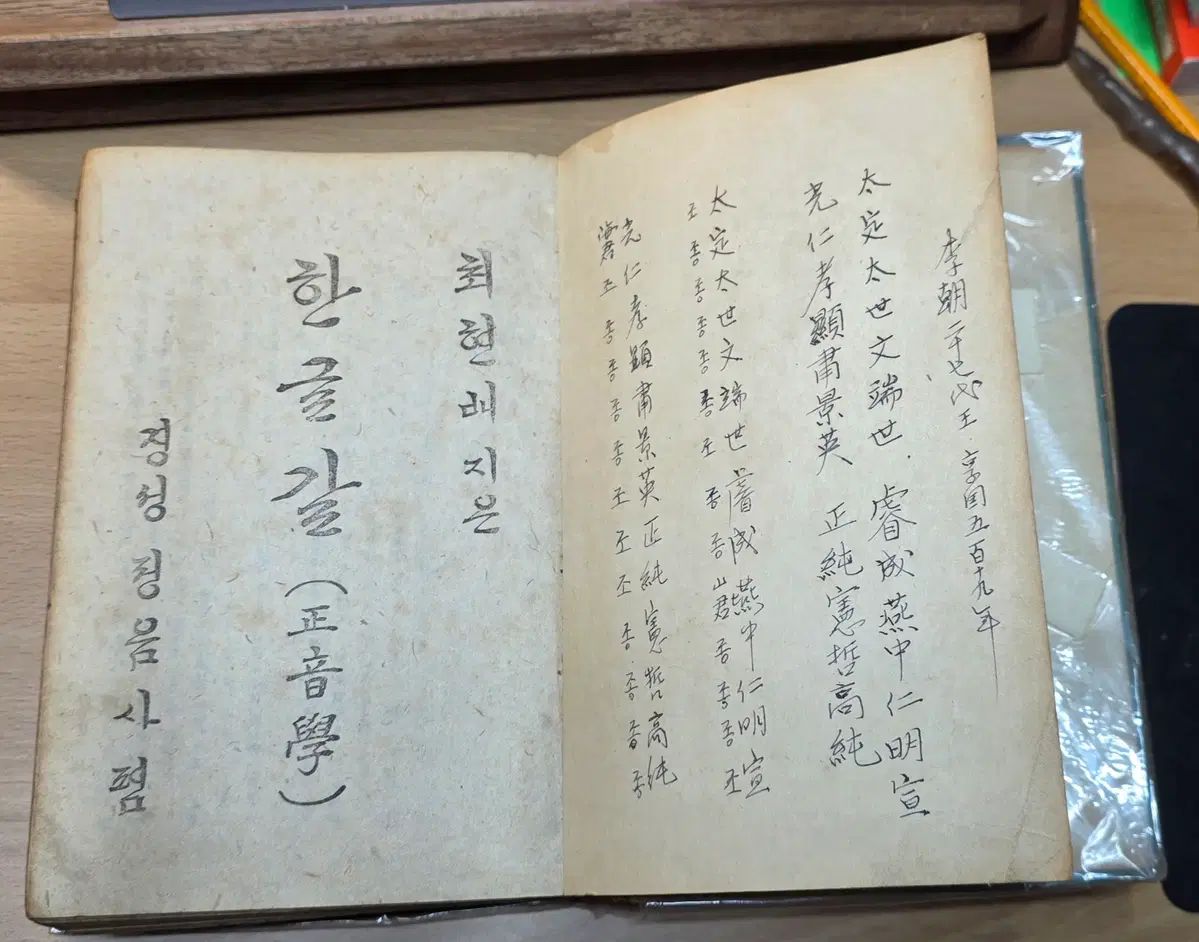 李朝二十七代王. 享国五百十九年
太定太世文端世. 睿成燕中仁明宣
光仁孝顯肅景英 正純憲哲高純
太定太世文端世睿成燕中仁明宣
조종종종종종조종종山君종종종조
光仁孝顯肅景英正純憲哲高純
海君조종종종종조조조종종종종
최현배 지은
한글갈(正音學)
경성 정음사 폄